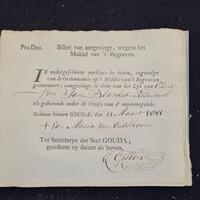 Pro Deo. Billet van aangevinge, wegens het
Middel van 't Begraven.
IK ondergeschreven verklare by deezen, ingevolge
van de Ordonnantie op 't Middel van 't Begraven
geëmaneert, aangevinge te doen van het Lyk van
van Jan Blanke
als gehorende onder de Classis van onvermogende.
Gedaan binnen GOUDA, den 11 Maart 1801
Maria van
Ter Secretarye der Stad GOUDA,
getekent op datum als boven.